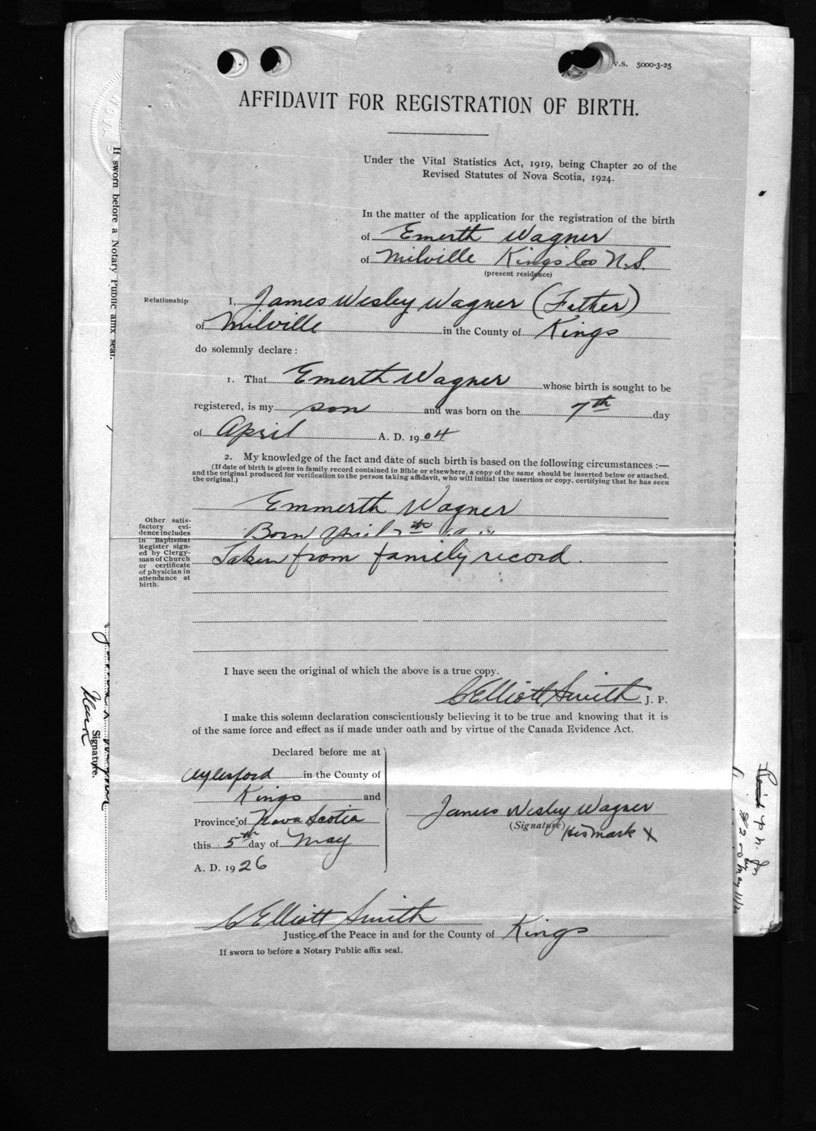 V.S. 5000-3-25
AFFIDAVIT FOR REGISTRATION OF BIRTH.
Under the Vital Statistics Act, 1919, being Chapter 20 of the
Revised Statutes of Nova Scotia, 1924.
In the matter of the application for the registration of the birth
of Emerth Wagner
of Milville Kings Co N.S.
(present residence)
Relationship
I, James Wesley Wagner (Father)
of Milville in the County of Kings
do solemnly declare:
1. That Emerth Wagner whose birth is sought to be
registered, is my son and was born on the 7th day
of April A. D. 1904
2. My knowledge of the fact and date of such birth is based on the following circumstances :—
(If date of birth is given in family record contained in Bible or elsewhere, a copy of the same should be inserted below or attached,
and the original produced for verification to the person taking affidavit, who will initial the insertion or copy, certifying that he has seen
the original.)
Emmerth Wagner
Born April 7th
Taken from family record.
Other satis-
factory evi-
dence includes
in Baptismal
Register sign-
ed by Clergy-
man of Church
or certificate
of physician in
attendance at
birth.
I have seen the original of which the above is a true copy.
C Elliott Smith J. P.
I make this solemn declaration conscientiously believing it to be true and knowing that it is
of the same force and effect as if made under oath and by virtue of the Canada Evidence Act.
Declared before me at
Aylesford in the County of
Kings and
Province of Nova Scotia
this 5th day of May
A. D. 1926
James Wesley Wagner
(Signature) his mark X
C Elliott Smith
Justice of the Peace in and for the County of Kings
If sworn to before a Notary Public affix seal.
If sworn before a Notary Public affix seal.
Mark
Signature.